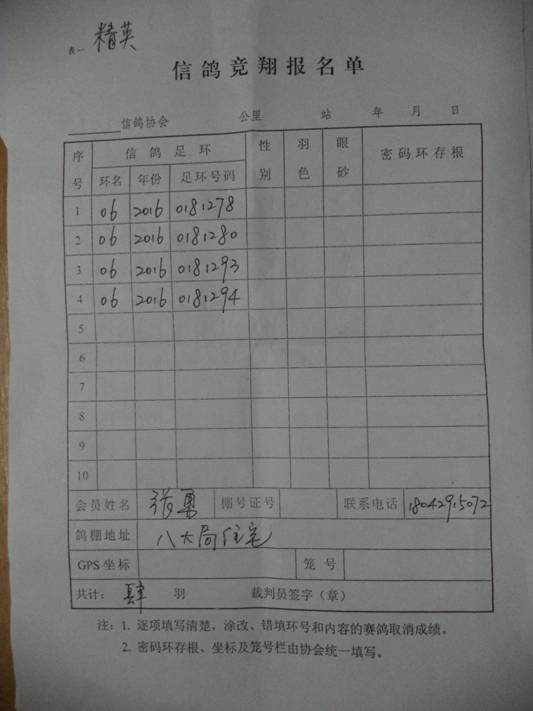 表一 精英
信鸽竞翔报名单
______信鸽协会 公里 站 年 月 日
序号 信鸽足环 性别 羽色 眼砂 密码环存根
环名 年份 足环号码
1 06 2016 0181278
2 06 2016 0181280
3 06 2016 0181293
4 06 2016 0181294
5
6
7
8
9
10
会员姓名 张勇 棚号证号 联系电话 18042915072
鸽棚地址 八大局住宅
GPS坐标 笼号
共计: 肆 羽 裁判员签字(章)
注:1. 逐项填写清楚,涂改、错填环号和内容的赛鸽取消成绩。
2. 密码环存根、坐标及笼号栏由协会统一填写。